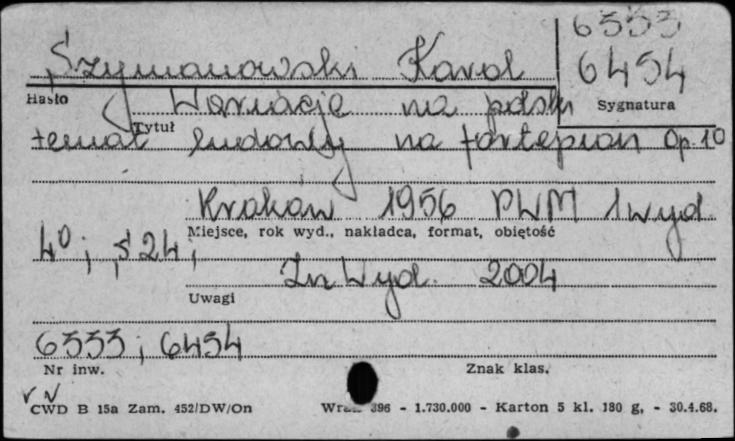 6333
Szymanowski Karol 6454
Hasło Sygnatura
Wariacje na polski
Tytuł
temat ludowy na fortepian Op. 10
Kraków 1956 PWM 1 wyd.
Miejsce, rok wyd., nakładca, format, objętość
4⁰; s 24;
In Wyd. 2004
Uwagi
6333; 6454
Nr inw. Znak klas.
CWD B 15a Zam. 452/DW/On 396 - 1.730.000 - Karton 5 kl. 180 g, - 30.4.68.